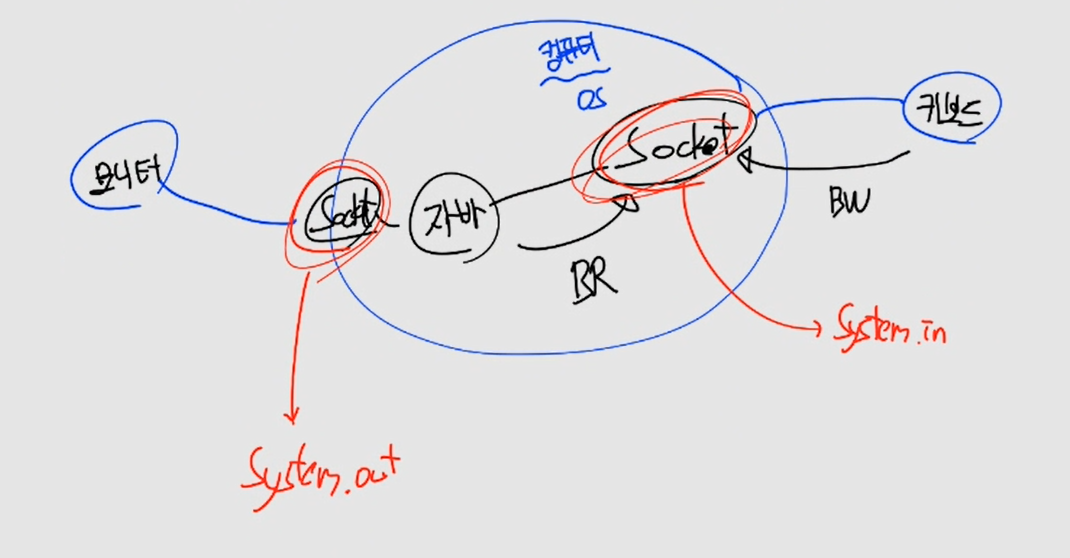 컴퓨터
OS
키보드
Socket
모니터
Socket
자바
BW
BR
System.in
System.out